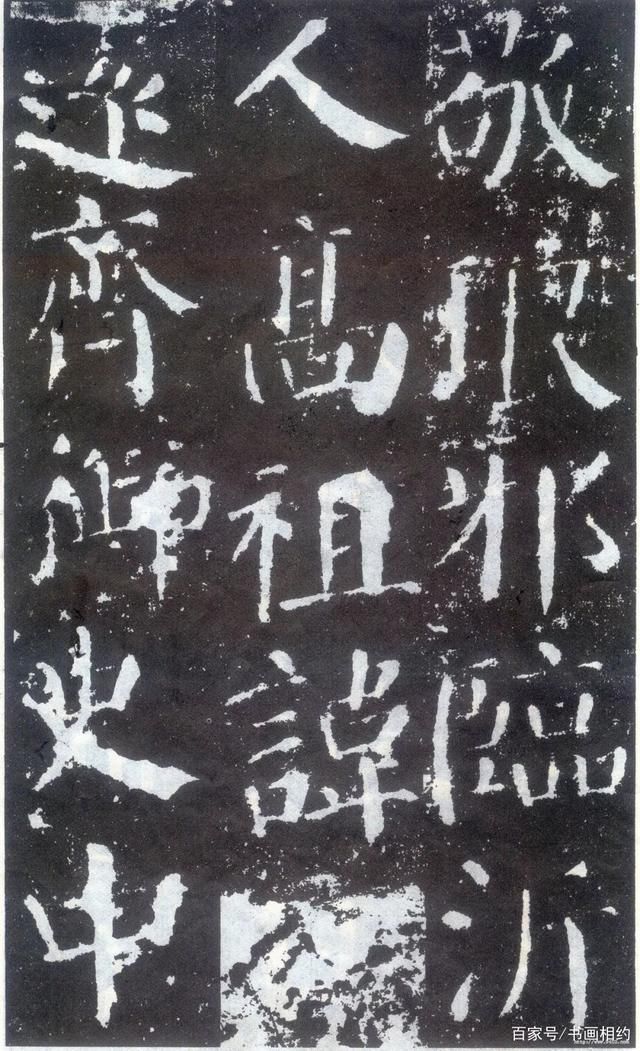 敬琅邪臨沂
人高祖諱
遠齊御史中
百家号/书画相约